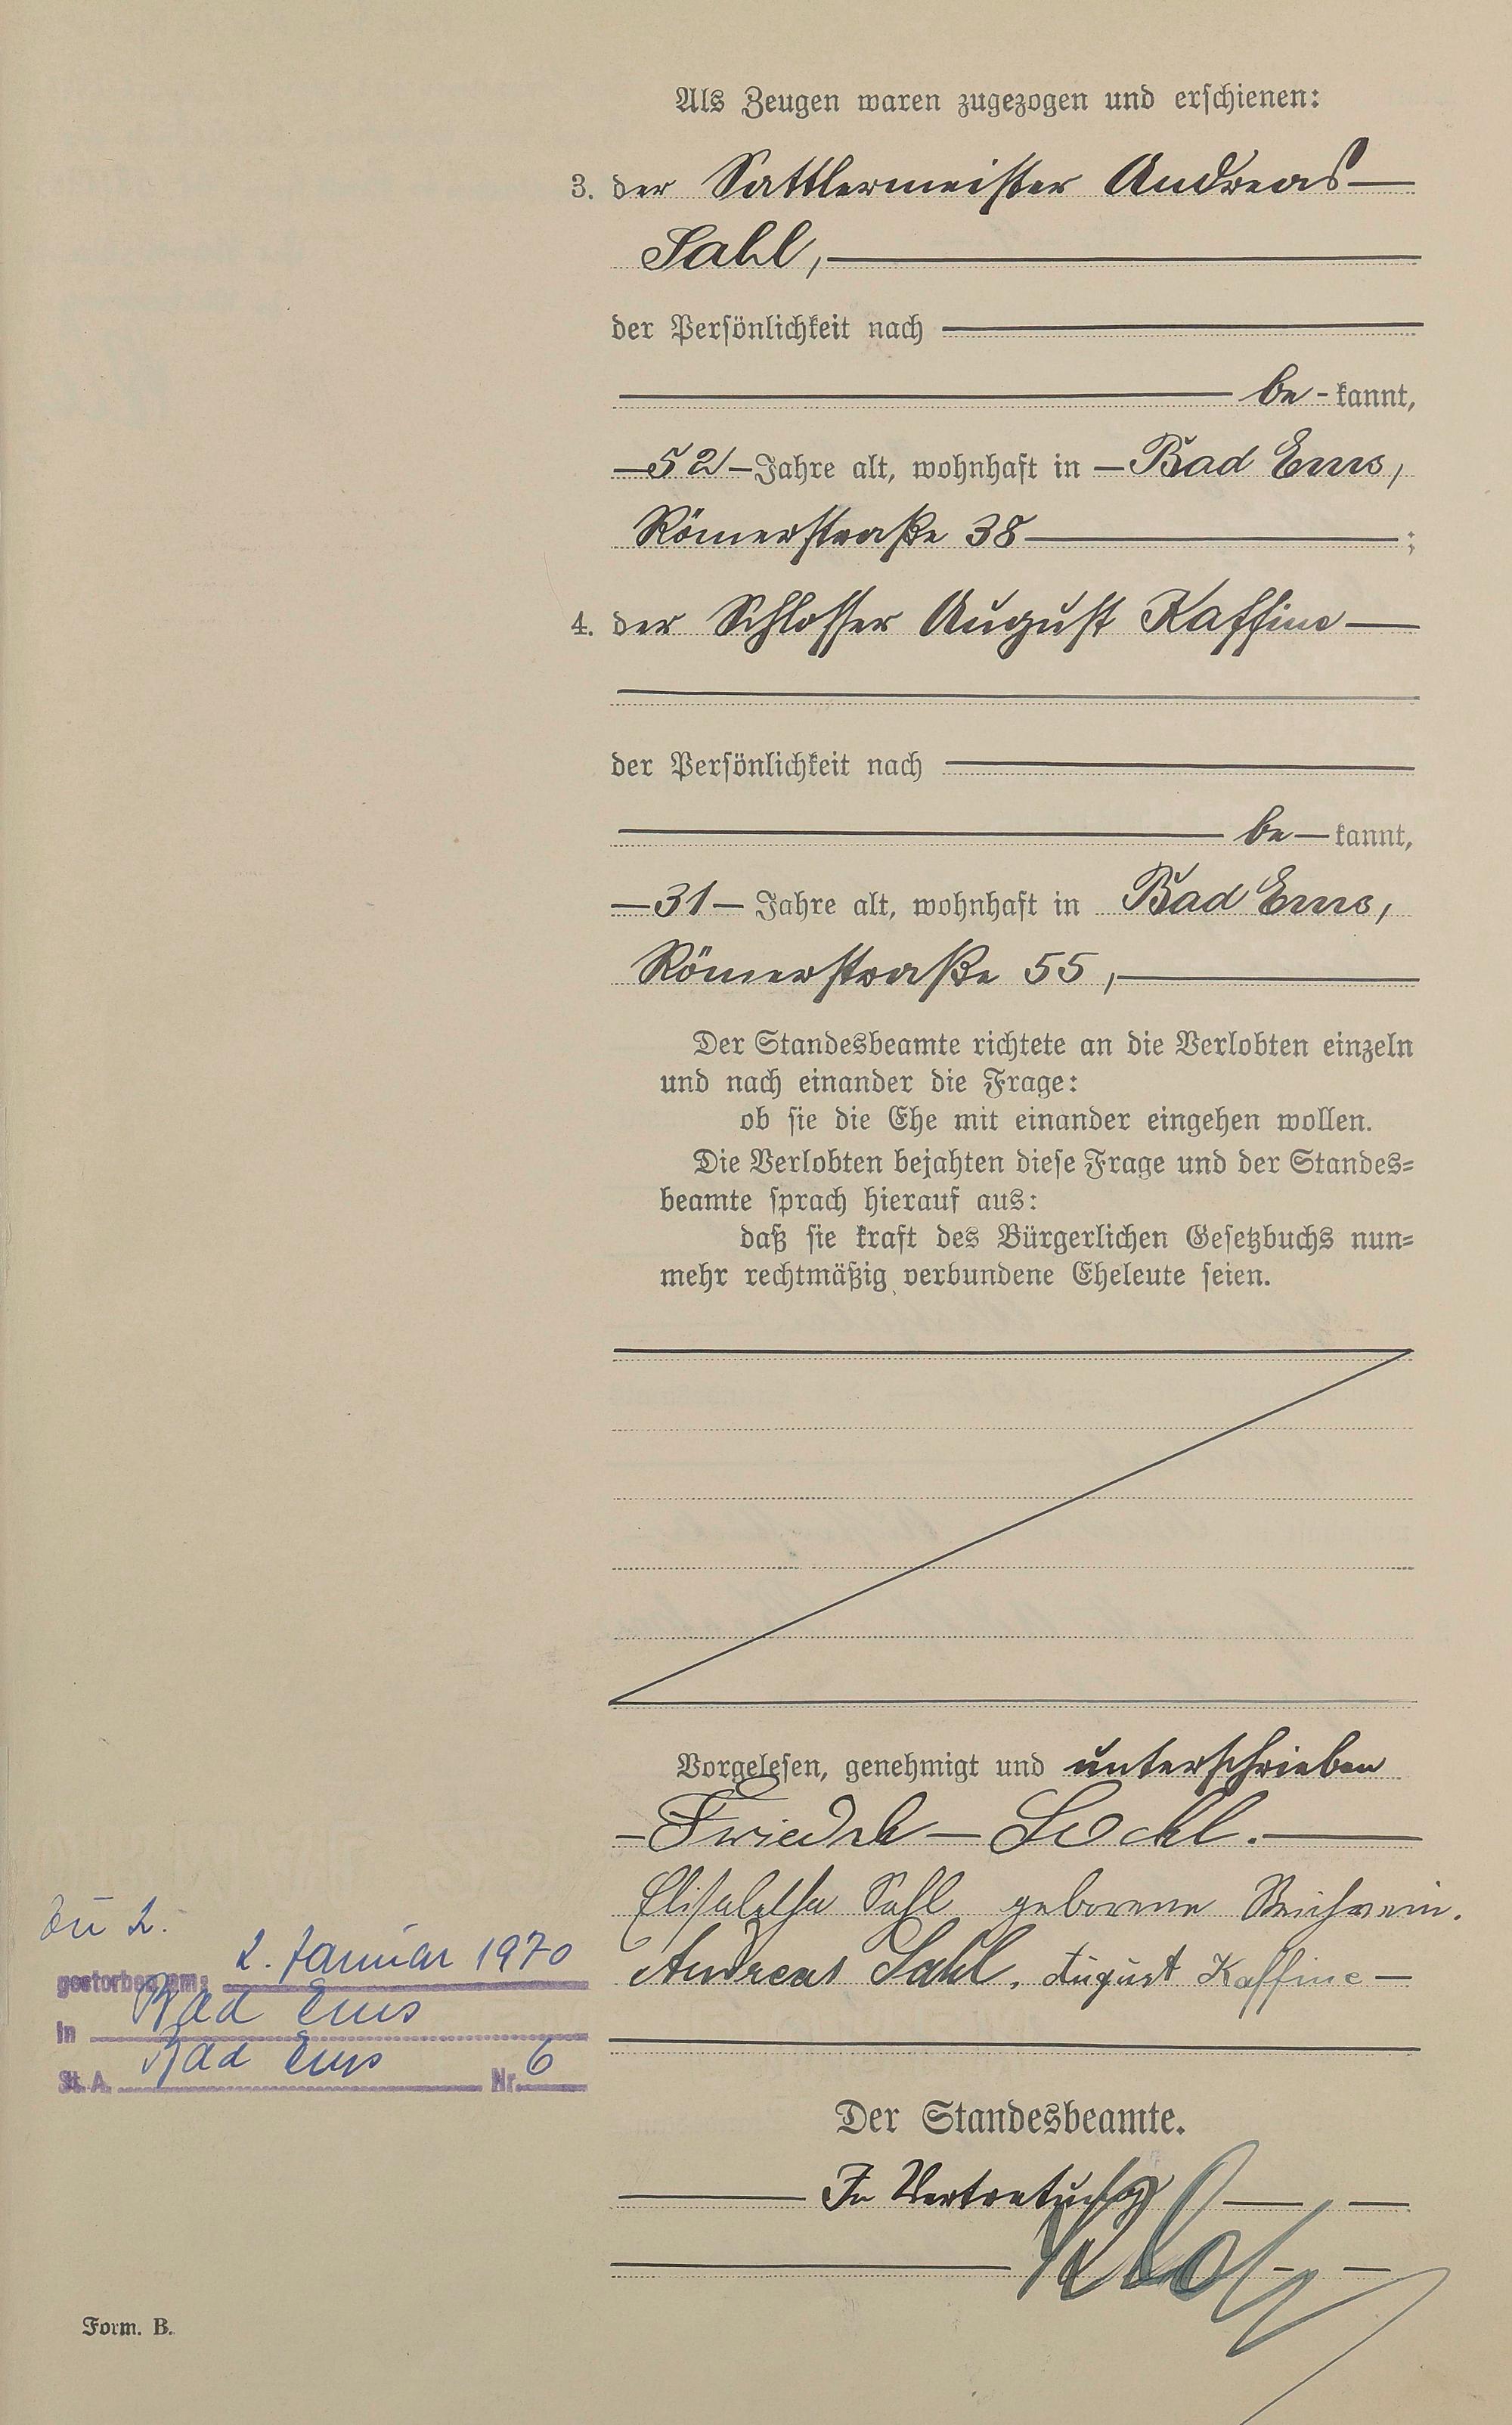 Als Zeugen waren zugezogen und erschienen:
3. der Sattlermeister Andreas
Sahl,
der Persönlichkeit nach
be-kannt,
52 Jahre alt, wohnhaft in Bad Ems,
Römerstraße 38 ;
4. der Schlosser August Kaffine
der Persönlichkeit nach
be kannt,
31 Jahre alt, wohnhaft in Bad Ems,
Römerstraße 55,
Der Standesbeamte richtete an die Verlobten einzeln
und nach einander die Frage:
ob sie die Ehe mit einander eingehen wollen.
Die Verlobten bejahten diese Frage und der Standes-
beamte sprach hierauf aus:
daß sie kraft des Bürgerlichen Gesetzbuchs nun-
mehr rechtmäßig verbundene Eheleute seien.
Vorgelesen, genehmigt und unterschrieben
Sahl.
Sahl geborene
Andreas Sahl. August Kaffine
zu 2.
gestorben am: 2. Januar 1970
in Bad Ems
St. A. Bad Ems Nr. 6
Der Standesbeamte.
In Vertretung
Form. B.